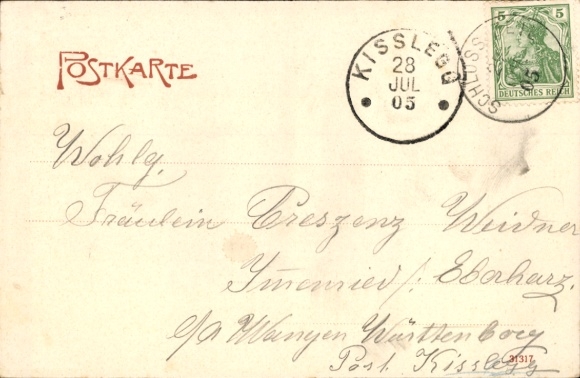 POSTKARTE
KISSLEGG
28
JUL
05
5 5
DEUTSCHES REICH
SCHLOSS
05
Wohlg.
Fräulein Creszenz Weidner
Immenried /: Eberharz.
O/A Wangen Württenberg
Post Kisslegg
31317